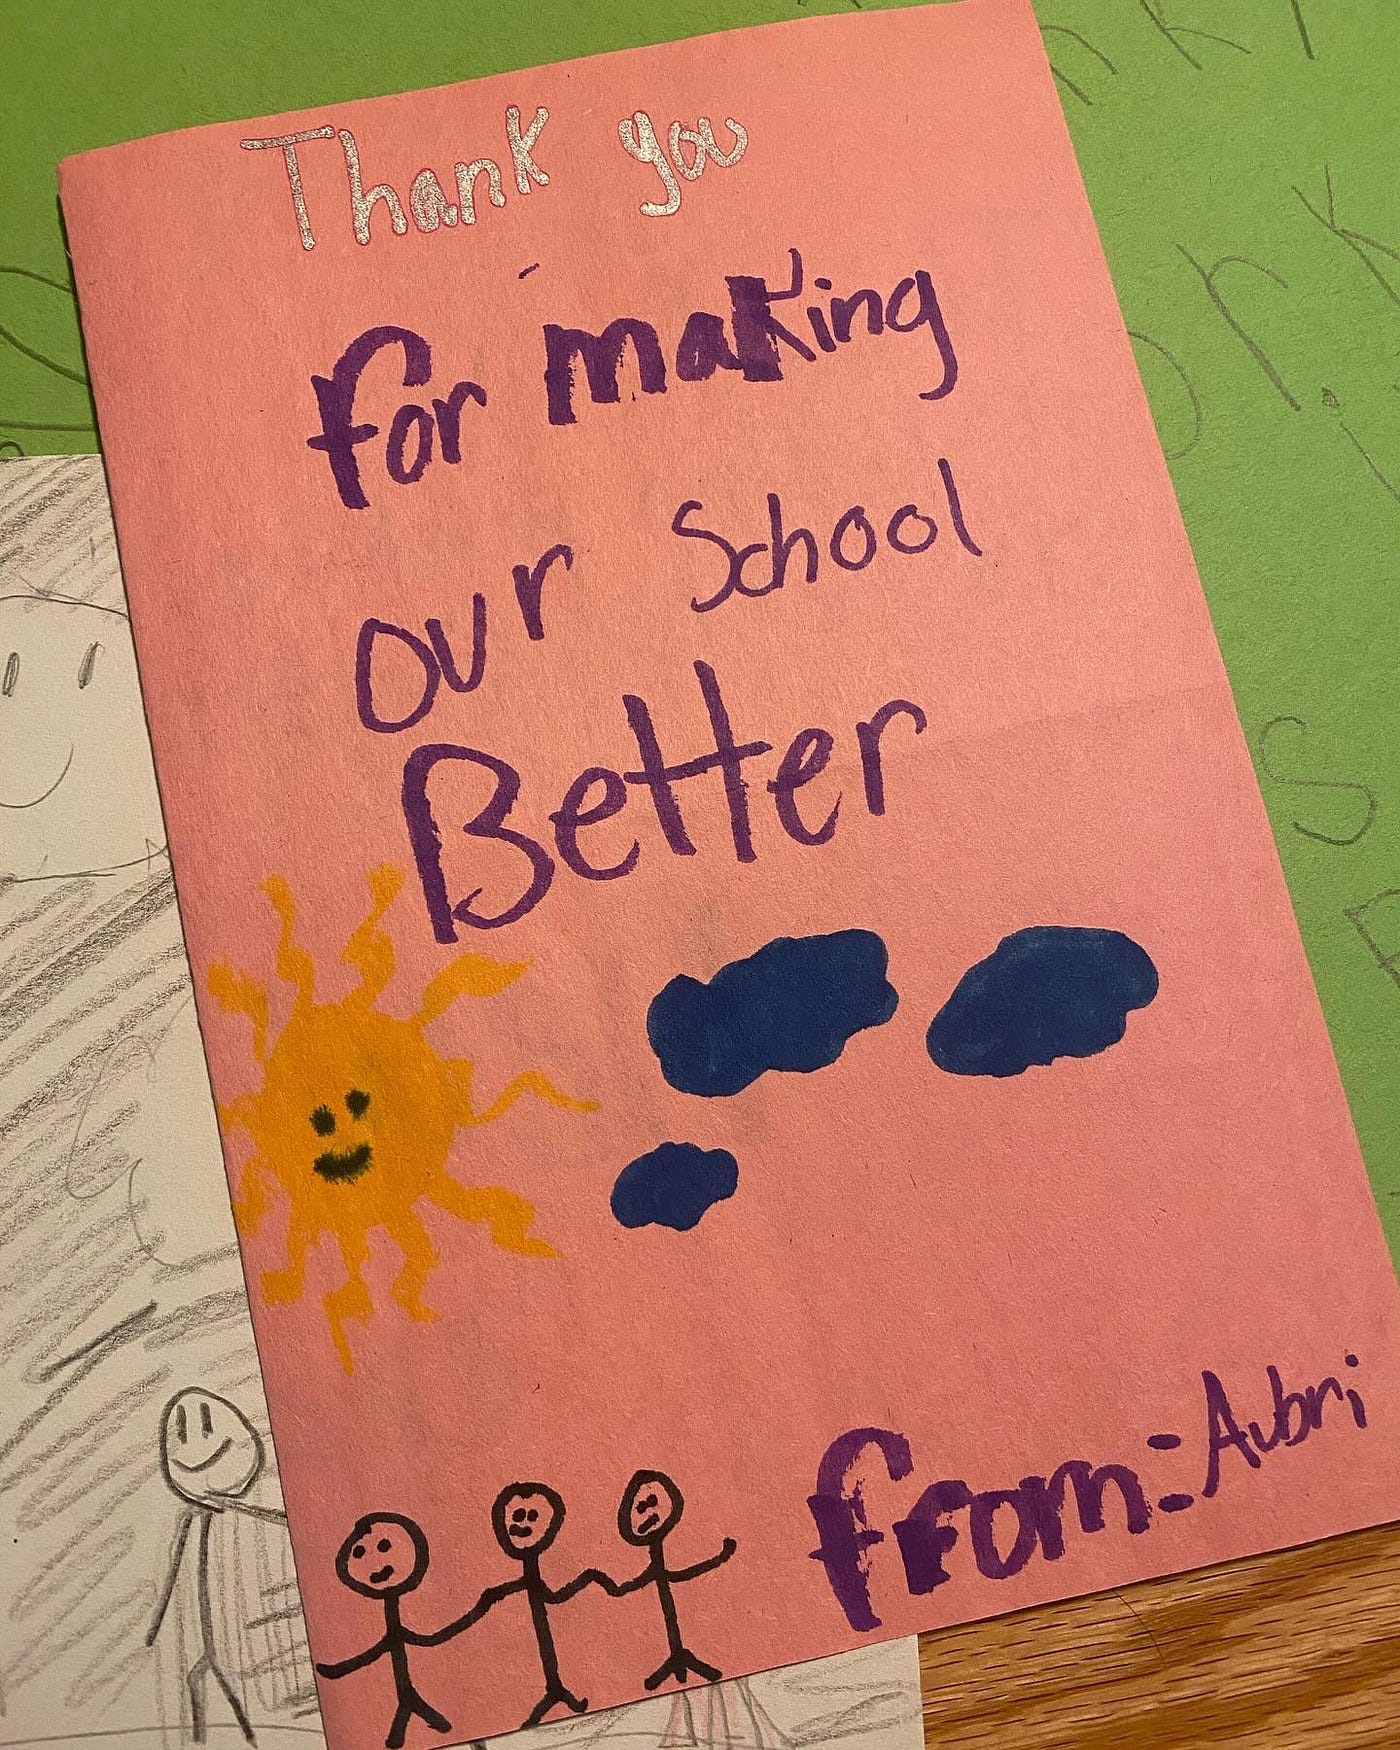 Thank you
For making
our School
Better
From: Aubri